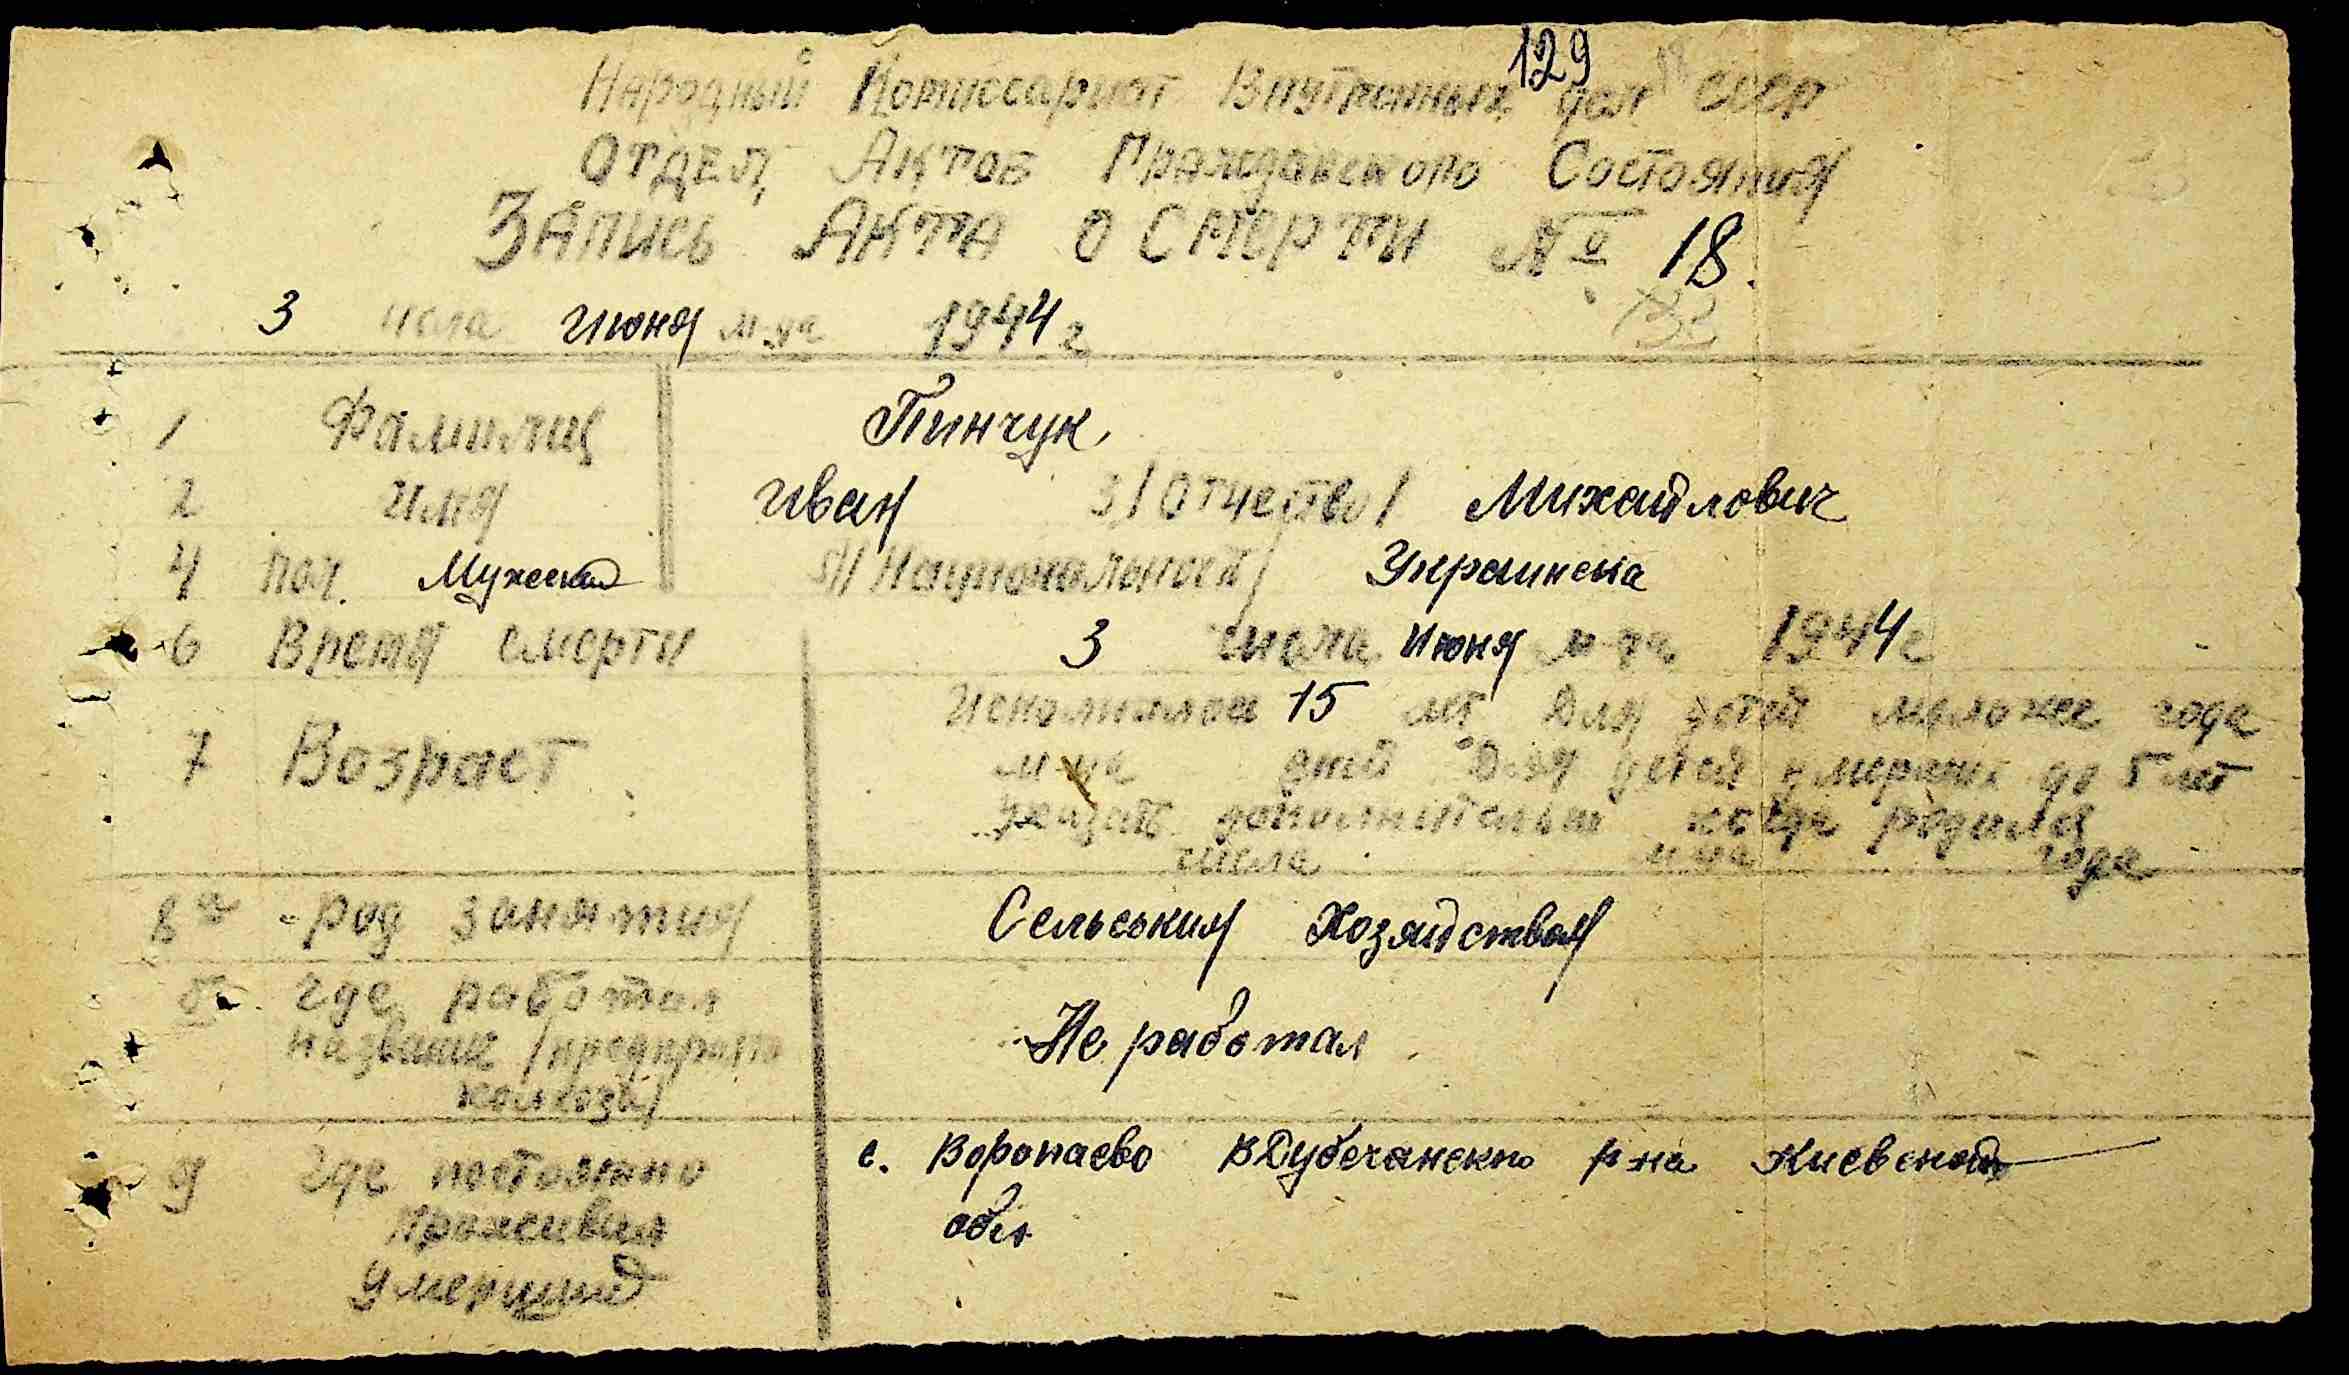 129
Народный Комиссариат Внутренных дел СССР
Отдел Актов Гражданского Состояния
Запись Акта о смерти № 18.
3 числа Июня м-ца 1944 г
1 Фамилия Пинчук
2 Имя Иван 3/ Отчество / Михайлович
4 пол. Мужской 5/ Национальность / Украинска
6 Время смерти 3 числа Июня м-ца 1944 г
7 Возраст Исполнилось 15 лет Для детей моложе года
м-ца дней Для детей умерших до 5 лет
указать дополнительно когда родился
числа м-ца года
8 а род занятия Сельския Хозяйствая
б где работал Не работал
название /предприятия
колхоза/
9 Где постоянно проживал умерший с. Воропаево В Дубечанского р-на Киевской
обл